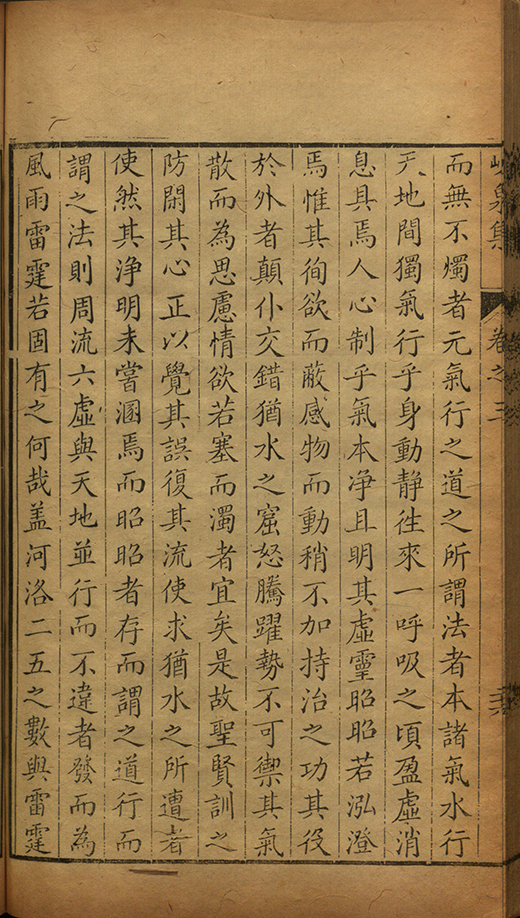 峴泉集
卷之三
而無不燭者元氣行之道之所謂法者本諸氣水行
天地間獨氣行乎身動靜徃來一呼吸之頃盈虛消
息具焉人心制乎氣本净且明其虛靈昭昭若泓澄
焉惟其徇欲而蔽感物而動稍不加持治之功其役
於外者顛仆交錯猶水之窟怒騰躍勢不可禦其氣
散而為思慮情欲若塞而濁者宜矣是故聖賢訓之
防閑其心正以覺其誤復其流使求猶水之所遭者
使然其浄明未嘗溷焉而昭昭者存而謂之道行而
謂之法則周流六虛與天地並行而不違者發而為
風雨雷霆若固有之何哉盖河洛二五之數與雷霆